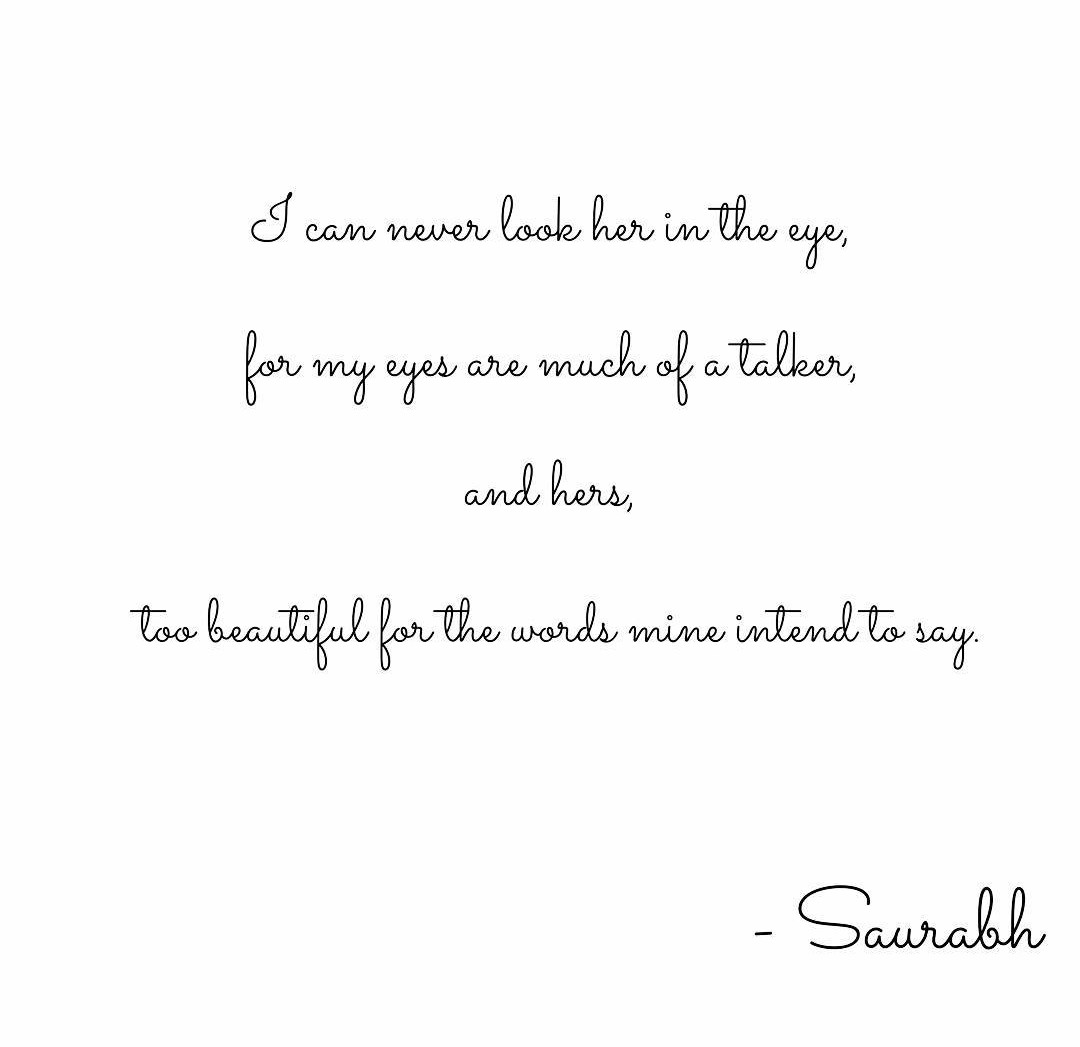 I can never look her in the eye,
for my eyes are much of a talker,
and hers,
too beautiful for the words mine intend to say.
- Saurabh